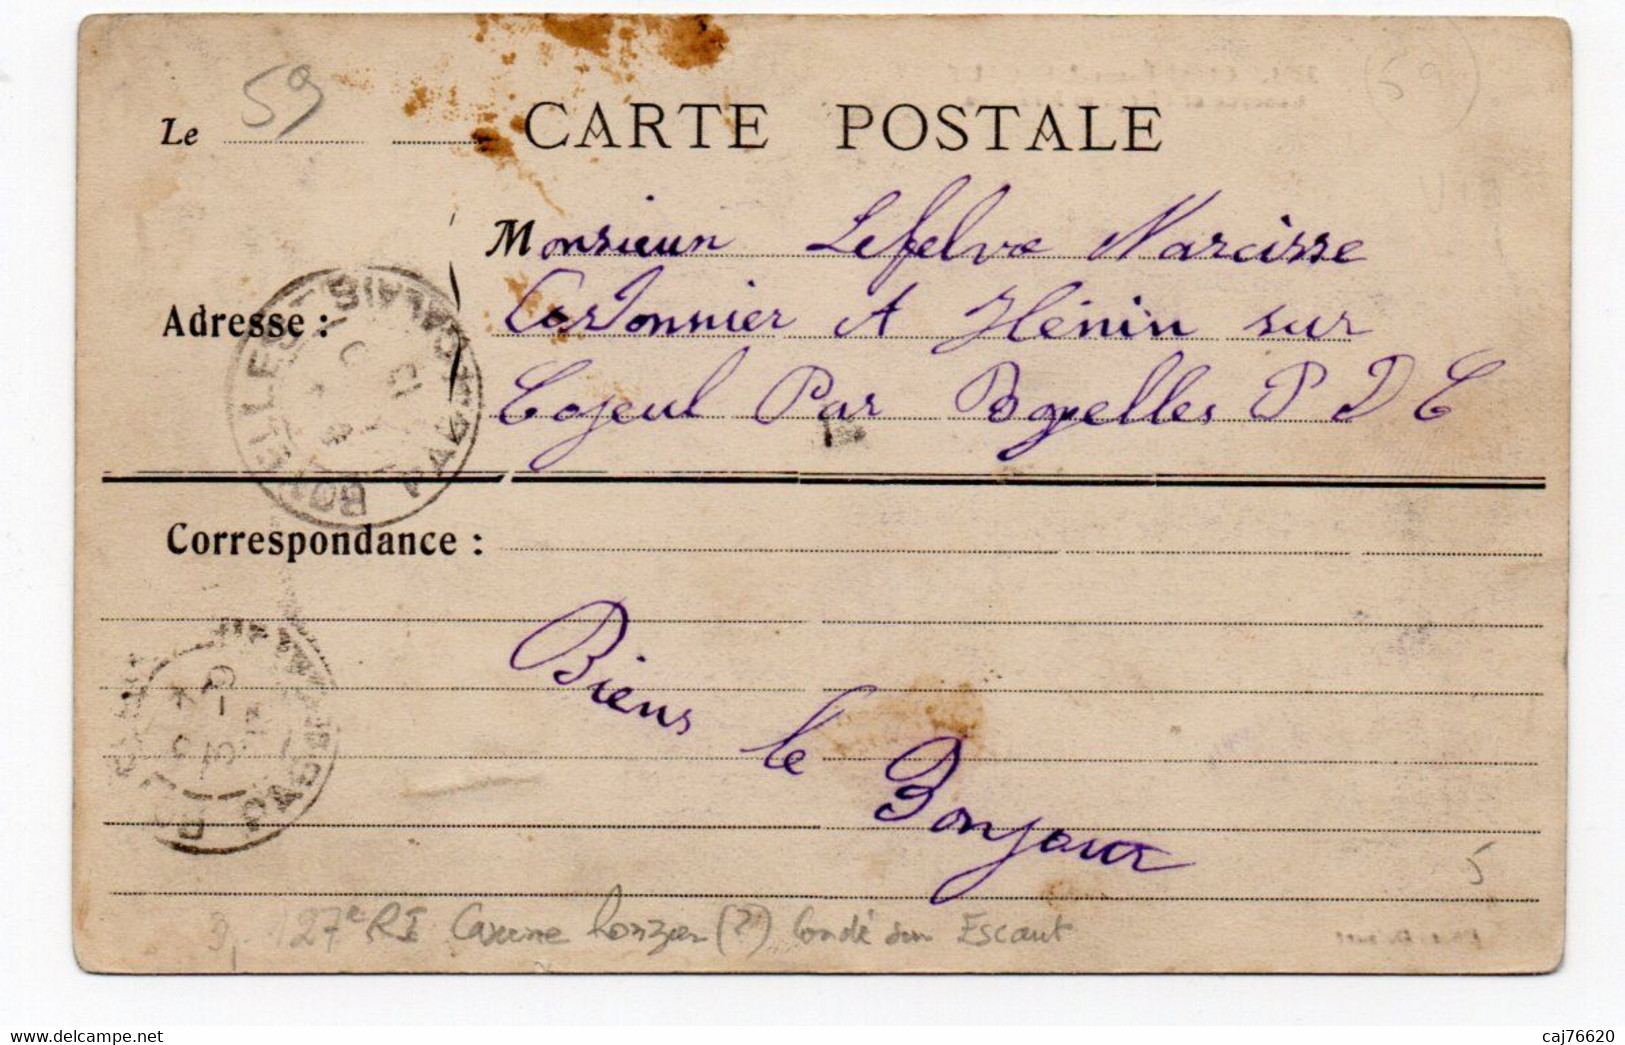 59
(59)
Le CARTE POSTALE
Monsieur Lefelve Narcisse
Adresse : Cordonnier A Hénin sur
Cojeul Par Boyelles P D C
BOYELLES PAS-DE-CALAIS
Correspondance :
Biens le
Bonjour
5
127e RI Caserne (?) Condé sur Escaut
caj76620